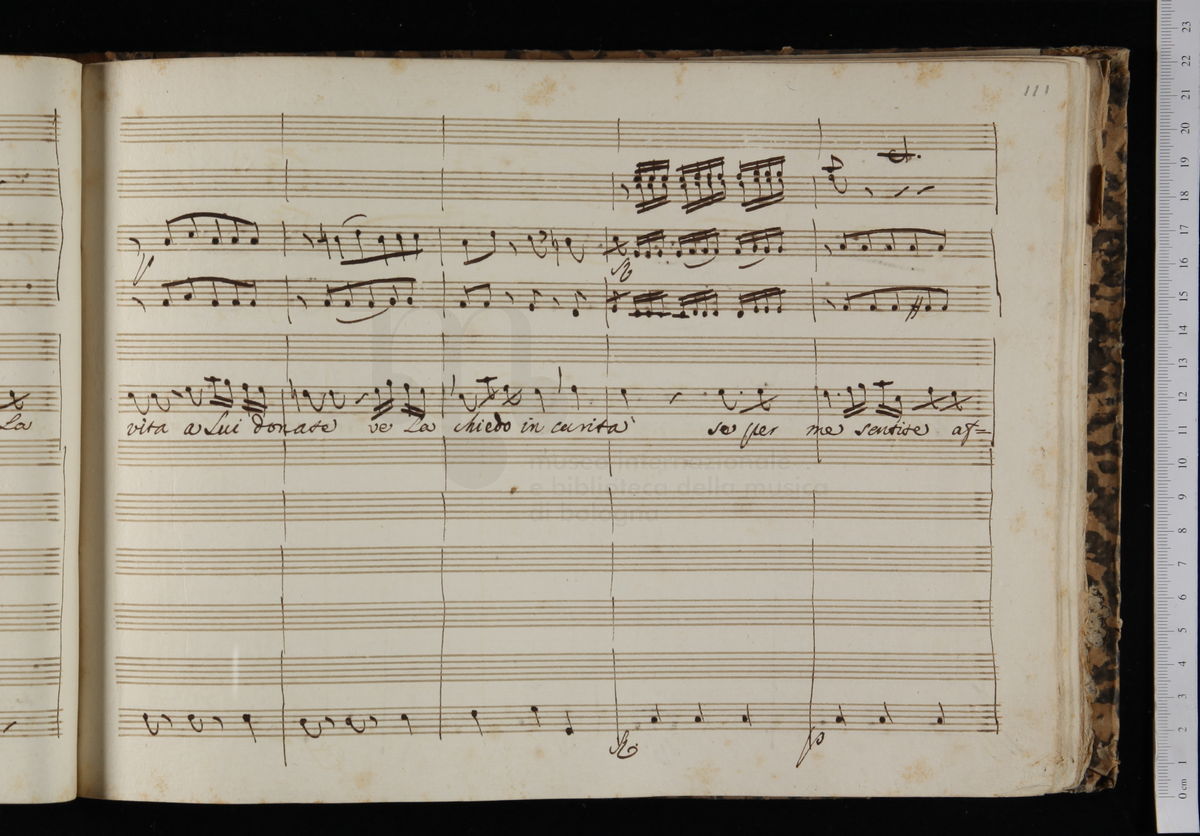 111
La
vita a Lui donate ve La chiedo in carità se per me sentite af=
museo internazionale
e biblioteca della musica
di bologna
23
22
21
20
19
18
17
16
15
14
13
12
11
10
9
8
7
6
5
4
3
2
1
0 cm